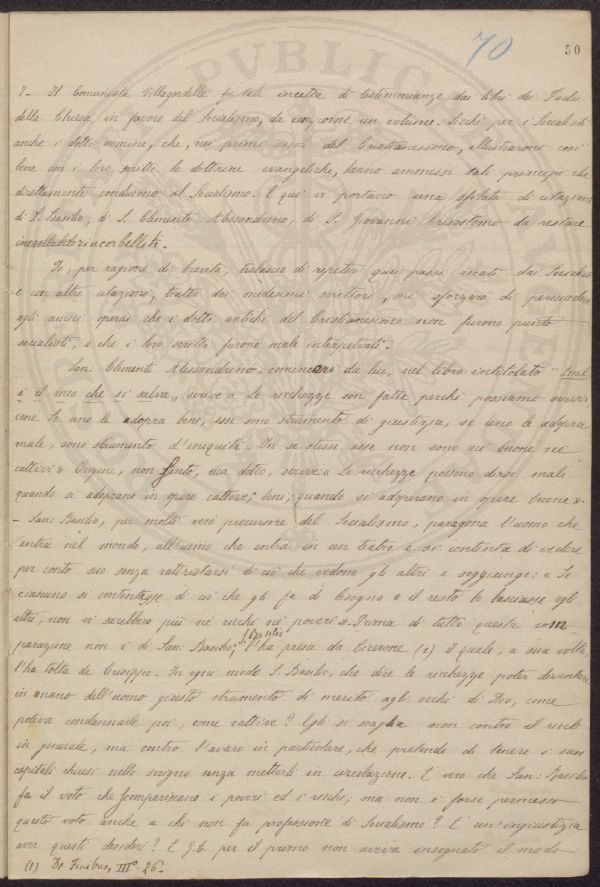 70
50
7- Il Comunista Villagardelle fe' tale incetta di testimonianze dai libri dei Padri
della Chiesa in favore del Socialismo, da comporne un volume. Sicchè per i Socialisti
anche i dotti uomini, che, nei primi secoli del Cristianesimo, illustrarono così
bene con i loro scritti le dottrine evangeliche, hanno ammessi tali principi che
direttamente conducono al Socialismo. E qui vi portano una sfilata di citazioni
di S. Basilio, di S. Clemente Alessandrino, di S. Giovanni Crisostomo da restare
incorbelliti.
Io, per ragione di brevità, tralascio di ripetere quei passi recati dai Socialisti
e con altre citazioni, tratte dai medesimi scrittori, mi sforzerò di persuadere
agli amici operai che i dotti antichi del Cristianesimo non furono punto
socialisti, e che i loro scritti furono male interpretati.
San. Clemente Alessandrino, comincerò da lui, nel libro intitolato " Qual
è il ricco che si salva„ scrive: « Le ricchezze son fatte perchè possiamo servir
cene. Se uno le adopra bene, esse sono strumento di giustizia, se uno le adopra
male, sono strumento d'iniquità. In se stesse esse non sono nè buone nè
cattive » Origene, non Santo, ma dotto, scrive: « Le ricchezze possono dirsi mali
quando si adoprano in opere cattive; beni, quando si adoperano in opere buone ».
- San: Basilio, per molti vero precursore del Socialismo, paragona l'uomo che
entra nel mondo, all'uomo che entra in un teatro e si contenta di vedere
per conto suo senza rattristarsi di ciò che vedono gli altri e soggiunge: « Se
ciascuno si contentasse di ciò che gli fa di bisogno e il resto lo lasciasse agli
altri, non vi sarebbero più nè ricchi nè poveri ». Prima di tutto questa com-
parazione non è di San: Basilio; S. Basilio l'ha presa da Cicerone (1) il quale, a sua volta
l'ha tolta da Crisippo. In ogni modo S. Basilio, che dice le ricchezze poter diventare
in mano dell'uomo giusto strumento di merito agli occhi di Dio, come
poteva condannarle poi, come cattive? Egli si scaglia non contro il ricco
in generale, ma contro l'avaro in particolare, che pretende di tenere i suoi
capitali chiusi nello scrigno senza metterli in circolazione. È vero che San: Basilio
fa il voto che scompariscano i poveri ed i ricchi, ma non è forse permesso
questo voto anche a chi non fa professione di Socialismo? È un'ingiustizia
aver questi desideri? E G.C. per il primo non aveva insegnato il modo
(1) De Finibus, III° 26.